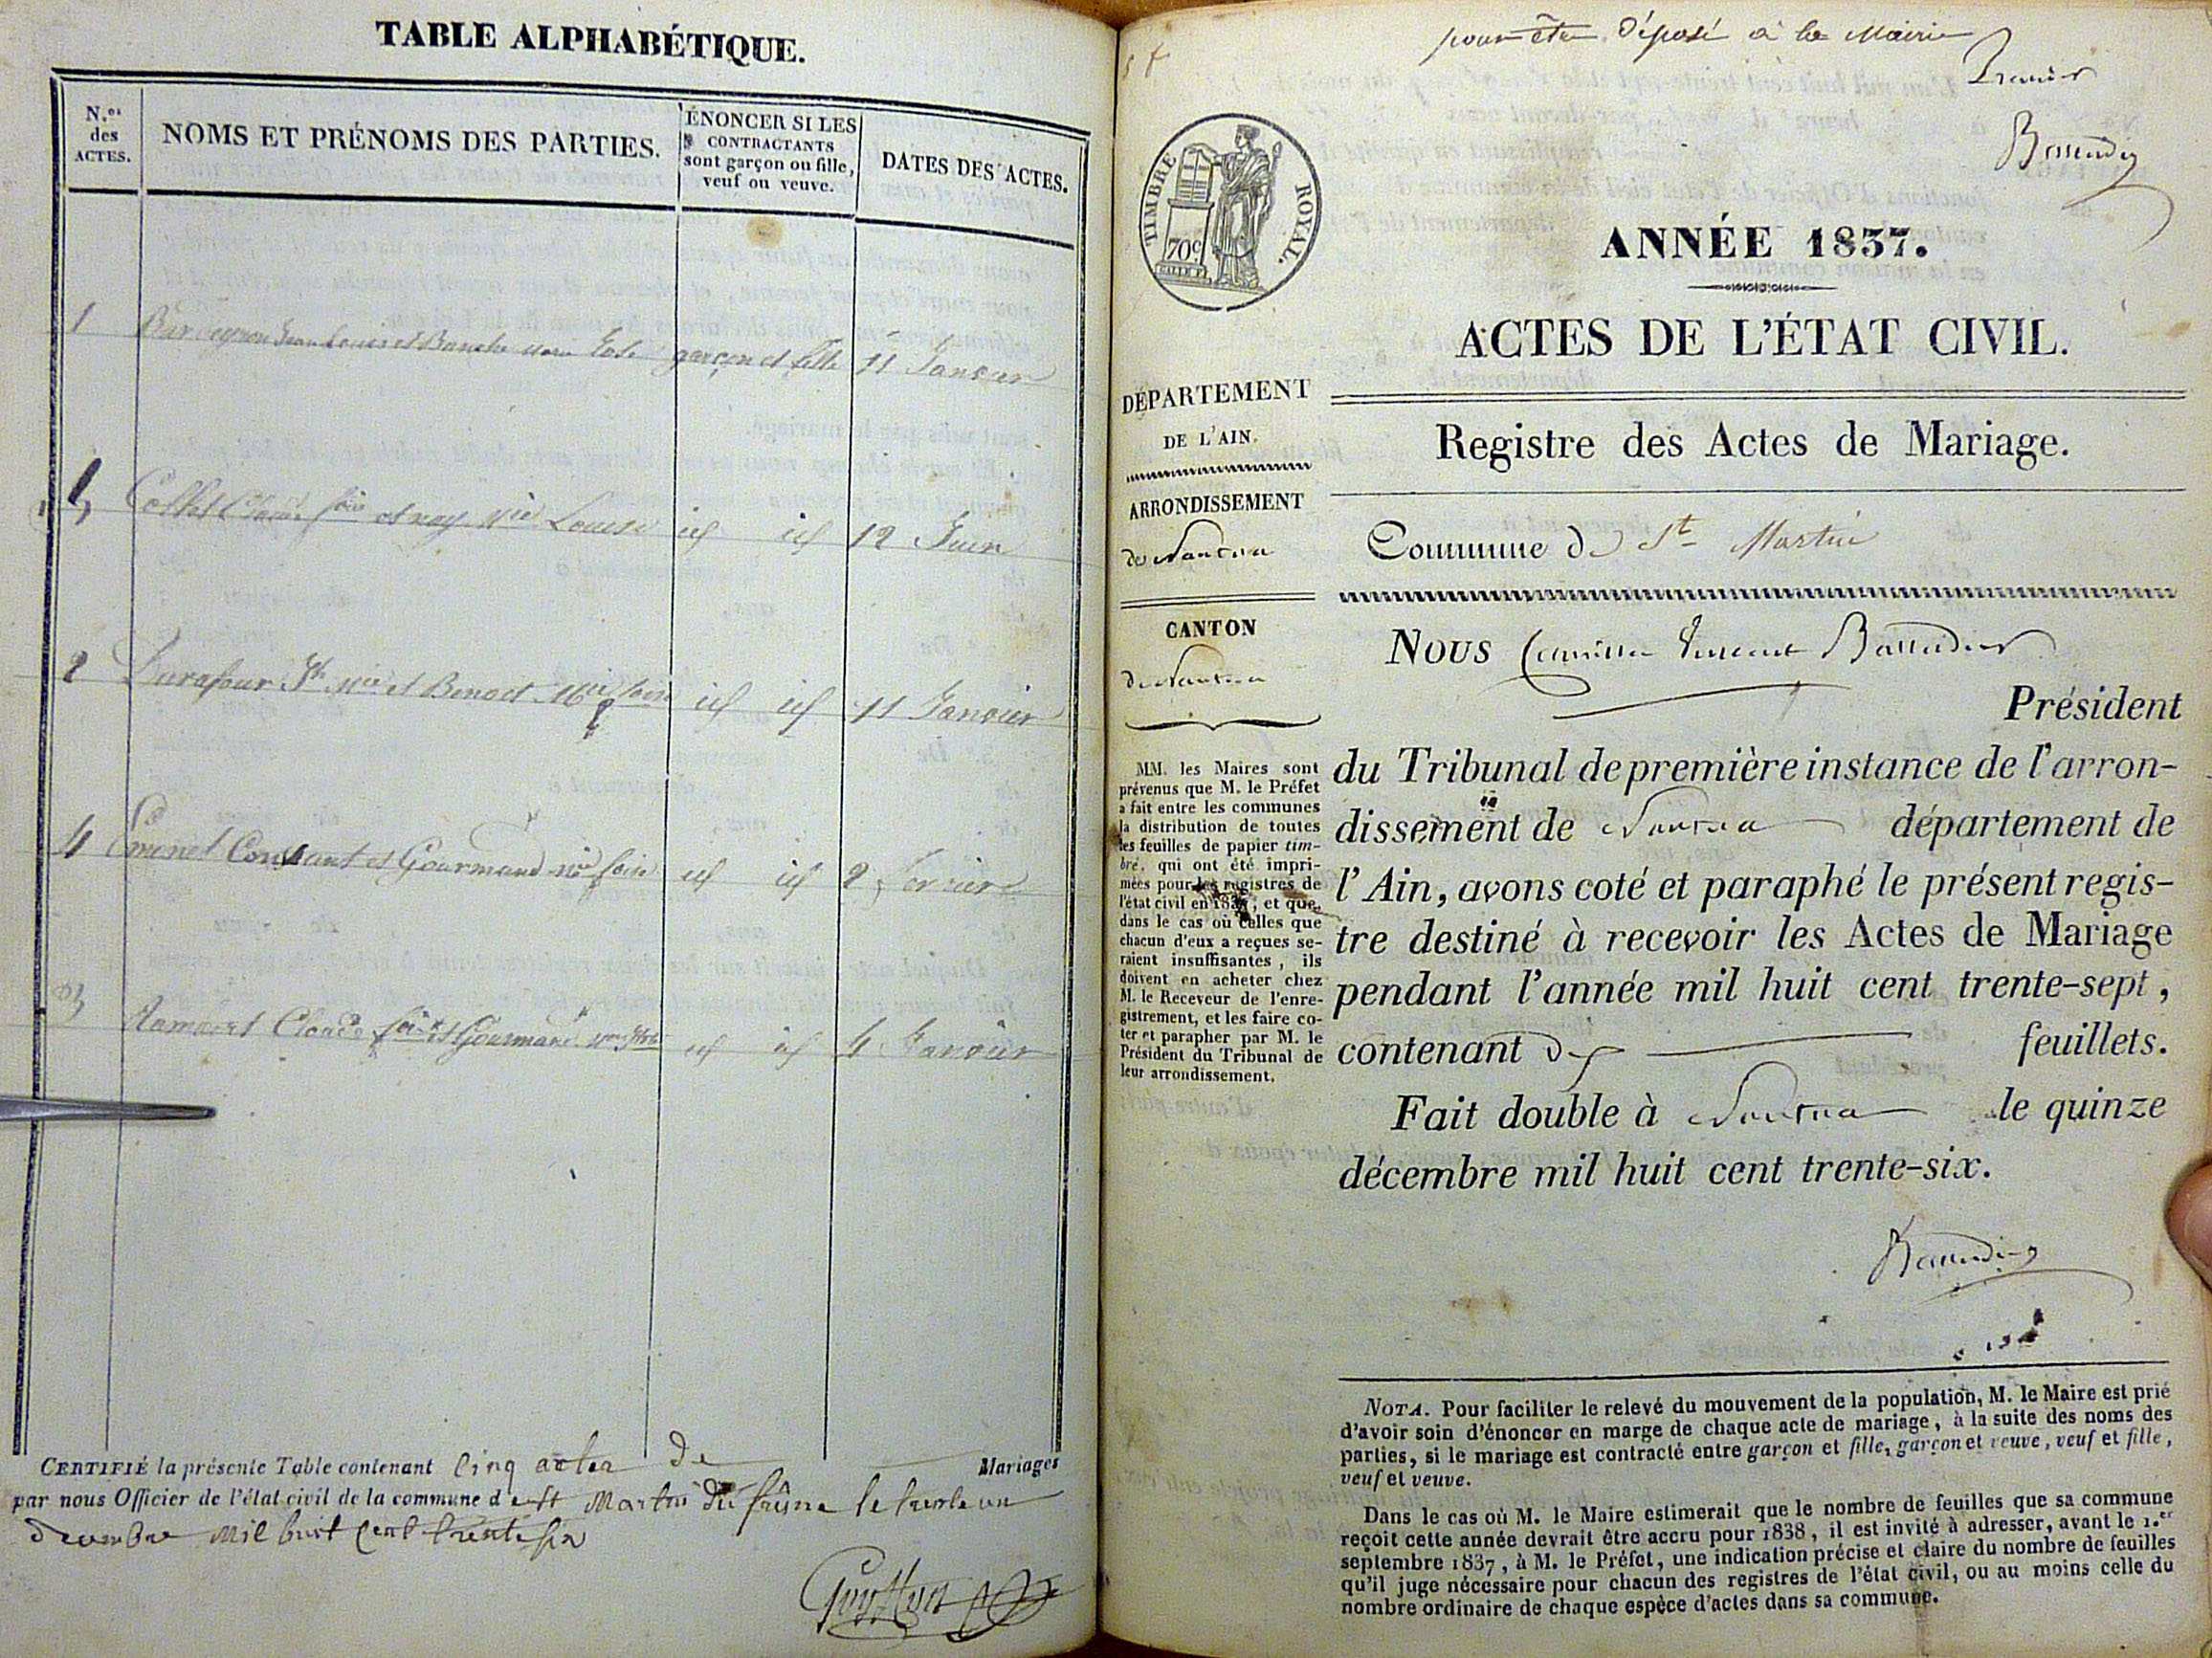 TABLE ALPHABÉTIQUE.
N.os des ACTES.
NOMS ET PRÉNOMS DES PARTIES.
ÉNONCER SI LES
CONTRACTANTS
sont garçon ou fille,
veuf ou veuve.
DATES DES ACTES.
1 Jean Louis et garçon et fille 11 Janvier
Louise id id 12 Juin
2 Durafour Jh Mie et Benoit id id 11 Janvier
4 Constant et Gourmand id id 2 Fevrier
Claude et Gourmand id id 4 Janvier
CERTIFIÉ la présente Table contenant Cinq actes de Mariages
par nous Officier de l'état civil de la commune de St Martin du frêne le trente un
decembre mil huit cent trente six
pour être déposé à la Mairie
TIMBRE ROYAL.
70c
ANNÉE 1837.
ACTES DE L'ÉTAT CIVIL.
DÉPARTEMENT
DE L'AIN.
ARRONDISSEMENT
de Nantua
CANTON
de Nantua
MM. les Maires sont
prévenus que M. le Préfet
a fait entre les communes
la distribution de toutes
les feuilles de papier tim-
bré, qui ont été impri-
mées pour les registres de
l'état civil en 1837, et que,
dans le cas où celles que
chacun d'eux a reçues se-
raient insuffisantes, ils
doivent en acheter chez
M. le Receveur de l'enre-
gistrement, et les faire co-
ter et parapher par M. le
Président du Tribunal de
leur arrondissement.
Registre des Actes de Mariage.
Commune de St Martin
NOUS
Président
du Tribunal de première instance de l'arron-
dissement de Nantua département de
l'Ain, avons coté et paraphé le présent regis-
tre destiné à recevoir les Actes de Mariage
pendant l'année mil huit cent trente-sept,
contenant feuillets.
Fait double à Nantua le quinze
décembre mil huit cent trente-six.
NOTA. Pour faciliter le relevé du mouvement de la population, M. le Maire est prié
d'avoir soin d'énoncer en marge de chaque acte de mariage, à la suite des noms des
parties, si le mariage est contracté entre garçon et fille, garçon et veuve, veuf et fille,
veuf et veuve.
Dans le cas où M. le Maire estimerait que le nombre de feuilles que sa commune
reçoit cette année devrait être accru pour 1838, il est invité à adresser, avant le 1.er
septembre 1837, à M. le Préfet, une indication précise et claire du nombre de feuilles
qu'il juge nécessaire pour chacun des registres de l'état civil, ou au moins celle du
nombre ordinaire de chaque espèce d'actes dans sa commune.